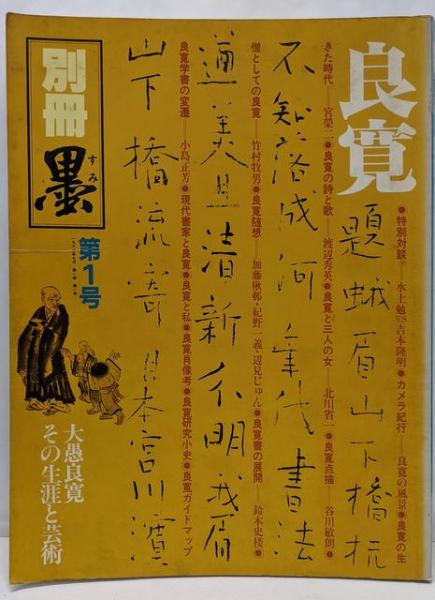 良寛
●特別対談──水上勉VS吉本隆明●カメラ紀行──良寛の風景●良寛の生
きた時代──宮栄二●良寛の詩と歌──渡辺秀英●良寛と三人の女──北川省一●良寛点描──谷川敏朗●
僧としての良寛──竹村牧男●良寛随想──加藤楸邨・紀野一義・辺見じゅん●良寛書の展開──鈴木史楼●
良寛学書の変遷──小島正芳●現代書家と良寛●良寛と私●良寛肖像考●良寛研究小史●良寛ガイドマップ
題蛾眉山下橋杭
不知落成何年代書法
遒美且清新分明我眉
山下橋流寄日本宮川濱
別冊
墨
すみ
第1号
大愚良寛
その生涯と芸術